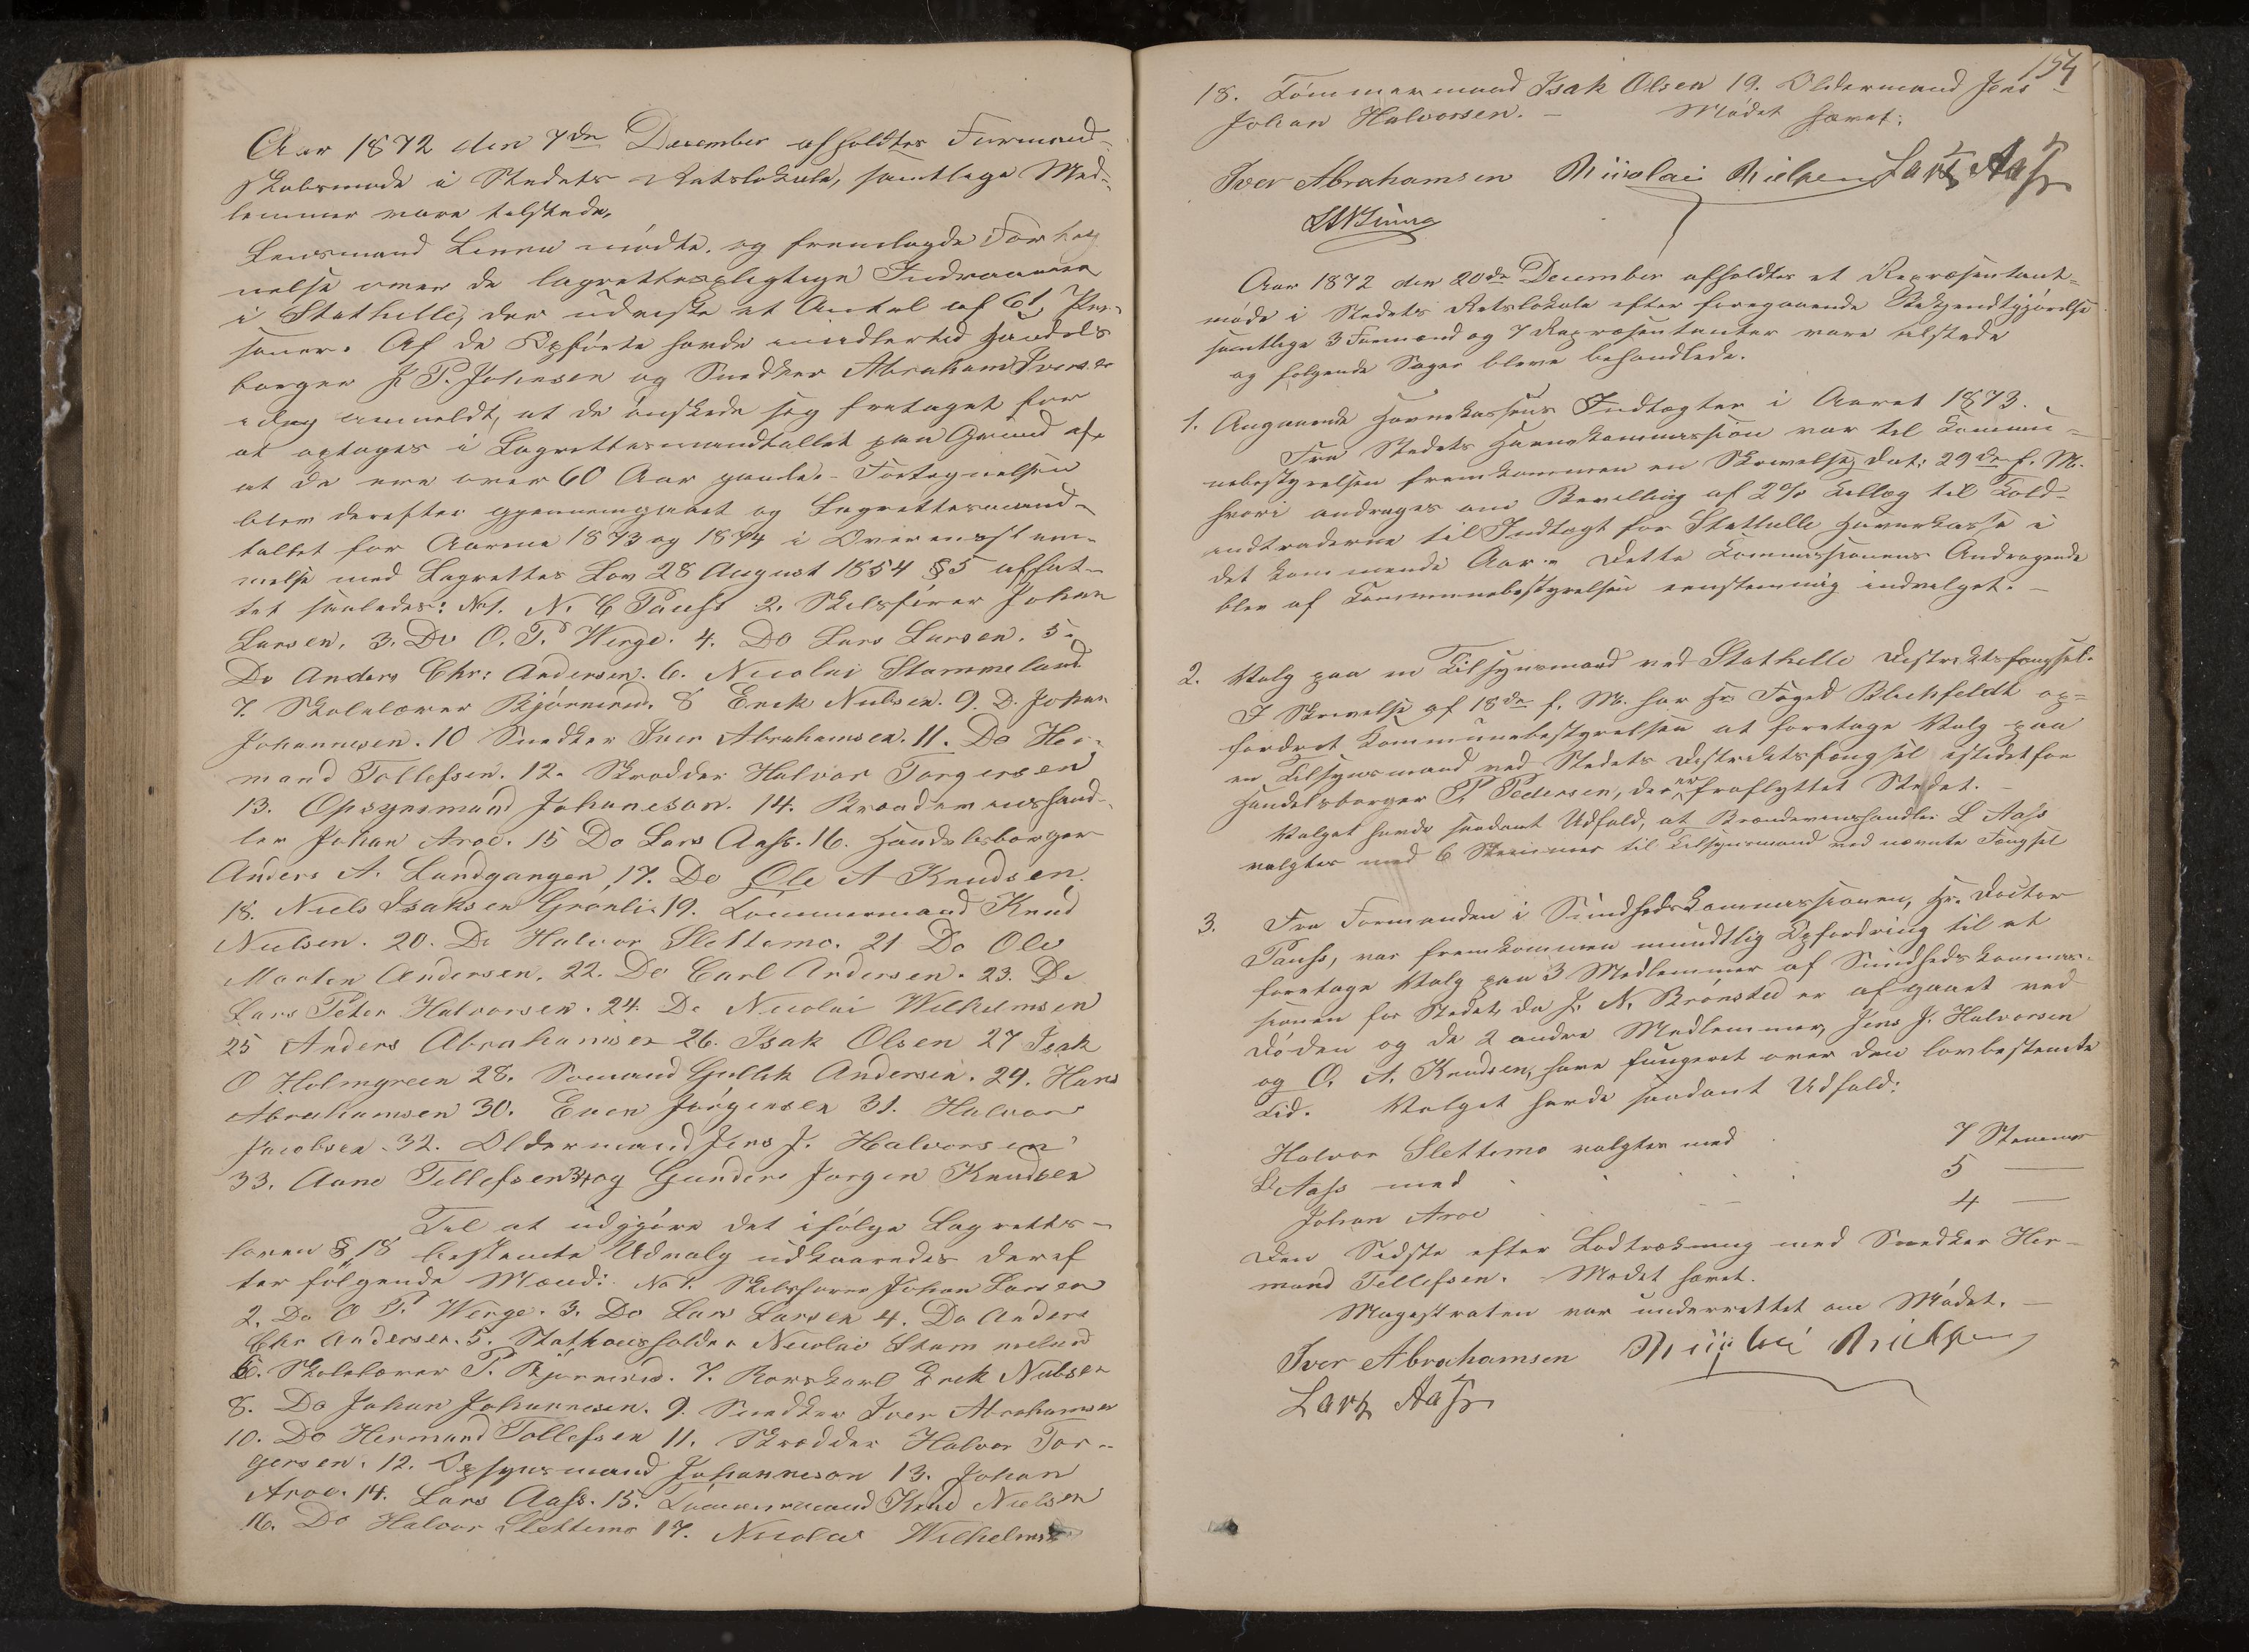 Aar 1872 den 7de December afholdtes Formand-
skabsmøde i Stedets Retslokale, samtlige Med-
lemmer vare tilstede.
Lensmand Linnu mødte og fremlagde Forteg
nelse over de lagrettespligtige Indvaanere
i Stathelle, der udviste et Antal af 61 Per-
soner. Af de Opførte havde imidlertid Handels
borger J. P. Johnsen og Snedker Abraham Iversen
idag anmeldt, at de ønskede sig fritaget for
at optages i Lagrettesmandtallet paa Grund af
at de ere over 60 Aar gamle. - Fortegnelsen
blev derefter gjennemgaaet og Lagrettesmand-
tallet for Aarene 1873 og 1874 i Overensstem-
melse med Lagrettes Lov 28 August 1854 § 5 affat-
tet saaledes: No 1. N. C Paust 2. Skibsfører Johan
Larsen. 3. Do O. T. Werge. 4. Do Lars Larsen. 5.
Do Anders Chr: Andersen. 6. Nicolai Stammeland
7. Skolelærer Bjørnerud. 8 Erik Nilsen. 9. D. Johan
Johannesen. 10 Snedker Iver Abrahamsen. 11. Do Her-
mand Tollefsen. 12. Skrædder Halvor Torgersen
13. Opsynsmand Johanneson. 14. Brændevinshand-
ler Johan Aroe. 15 Do Lars Aass. 16. Handelsborger
Anders A. Landgangen 17. Do Ole A Knudsen
18. Niels Isaksen Grønli. 19. Tømmermand Knud
Nielsen. 20. Do Halvor Slettemo. 21 Do Ole
Morten Andersen. 22. Do Carl Andersen. 23. Do
Lars Peter Halvorsen. 24. Do Nicolai Wilhelmsen
25 Anders Abrahamsen 26. Isak Olsen 27 Isak
O Holmgreen 28. Sømand Gullik Andersen. 29. Hans
Abrahamsen 30. Even Jørgensen 31. Halvor
Jacobsen. 32. Oldermand Jens J. Halvorsen
33. Aane Tellefsen 34 og Gunders Jørgen Knudsen
Til at udgjøre det ifølge Lagrettes-
loven § 18 bestemte Udvalg udkaaredes deref
ter følgende Mænd: No 1. Skibsfører Johan Larsen
2. Do O T. Werge. 3. Do Lars Larsen 4. Do Anders
Chr Andersen. 5. Nicolai Stammeland
6. Skolelærer P. Bjørnerud. 7. Rorskarl Erik Nilsen
8. Do Johan Johannesen. 9. Snedker Iver Abrahamsen
10. Do Hermand Tollefsen 11. Skrædder Halvor Tor-
gersen. 12. Opsynsmand Johanneson 13. Johan
Aroe. 14. Lars Aass. 15. Tømmermand Knud Nielsen
16. Do Halvor Slettemo 17. Nicolai Wilhelmsen
154
18. Tømmermand Isak Olsen 19. Oldermand Jens
Johan Halvorsen. - Mødet hævet.
Iver Abrahamsen Nicolai Nielsen Lars Aass
Aar 1872 den 20de December afholdtes et Repræsentant-
møde i Stedets Retslokale efter foregaaende Bekjendtgjørelse
samtlige 3 Formænd og 7 Repræsentanter vare tilstede
og følgende Sager bleve behandlede.
1. Angaaende Havnekassens Indtægter i Aaret 1873.
Fra Stedets Havnekommission var til Kommu-
nebestyrelsen fremkommen en Skrivelse dat: 29de f. M.
hvori andrages om Bevilling af 2% Tillæg til Told-
indtraderne til Indtægt for Stathelle Havnekasse i
det kommende Aar. - Dette Kommissionens Andragende
blev af Kommunebestyrelsen eenstemmig indvilget. -
2. Valg paa en Tilsynsmand ved Stathelle Distriktsfængsel.
I Skrivelse af 18de f. M. har Hr Foged Blechfeldt op-
fordret Kommunebestyrelsen at foretage Valg paa
en Tilsynsmand ved Stedets Distriktsfængsel istedetfor
Handelsborger P. Pedersen, der er fraflyttet Stedet. -
Valget havde saadant Udfald, at Brændevinshandler L Aass
valgtes med 6 Stemmer til Tilsynsmand ved nævnte Fængsel
3. Fra Formanden i Sundhedskommissionen, Hr. Doctor
Pauss, var fremkommen mundtlig Opfordring til at
foretage Valg paa 3 Medlemmer af Sundhedskommis-
sionen for Stedet, da J. N. Brønsted er afgaaet ved
Døden og de 2 andre Medlemmer, Jens J. Halvorsen
og O. A. Knudsen, have fungeret over den lovbestemte
Tid. Valget havde saadant Udfald:
Halvor Slettemo valgtes med 7 Stemmer
L Aass med 5 —
Johan Aroe 4 —
Den Sidste efter Lodtrækning med Snedker Her-
mand Tellefsen. - Mødet hævet.
Magistraten var underrettet om Mødet. -
Iver Abrahamsen Nicolai Nielsen
Lars Aass